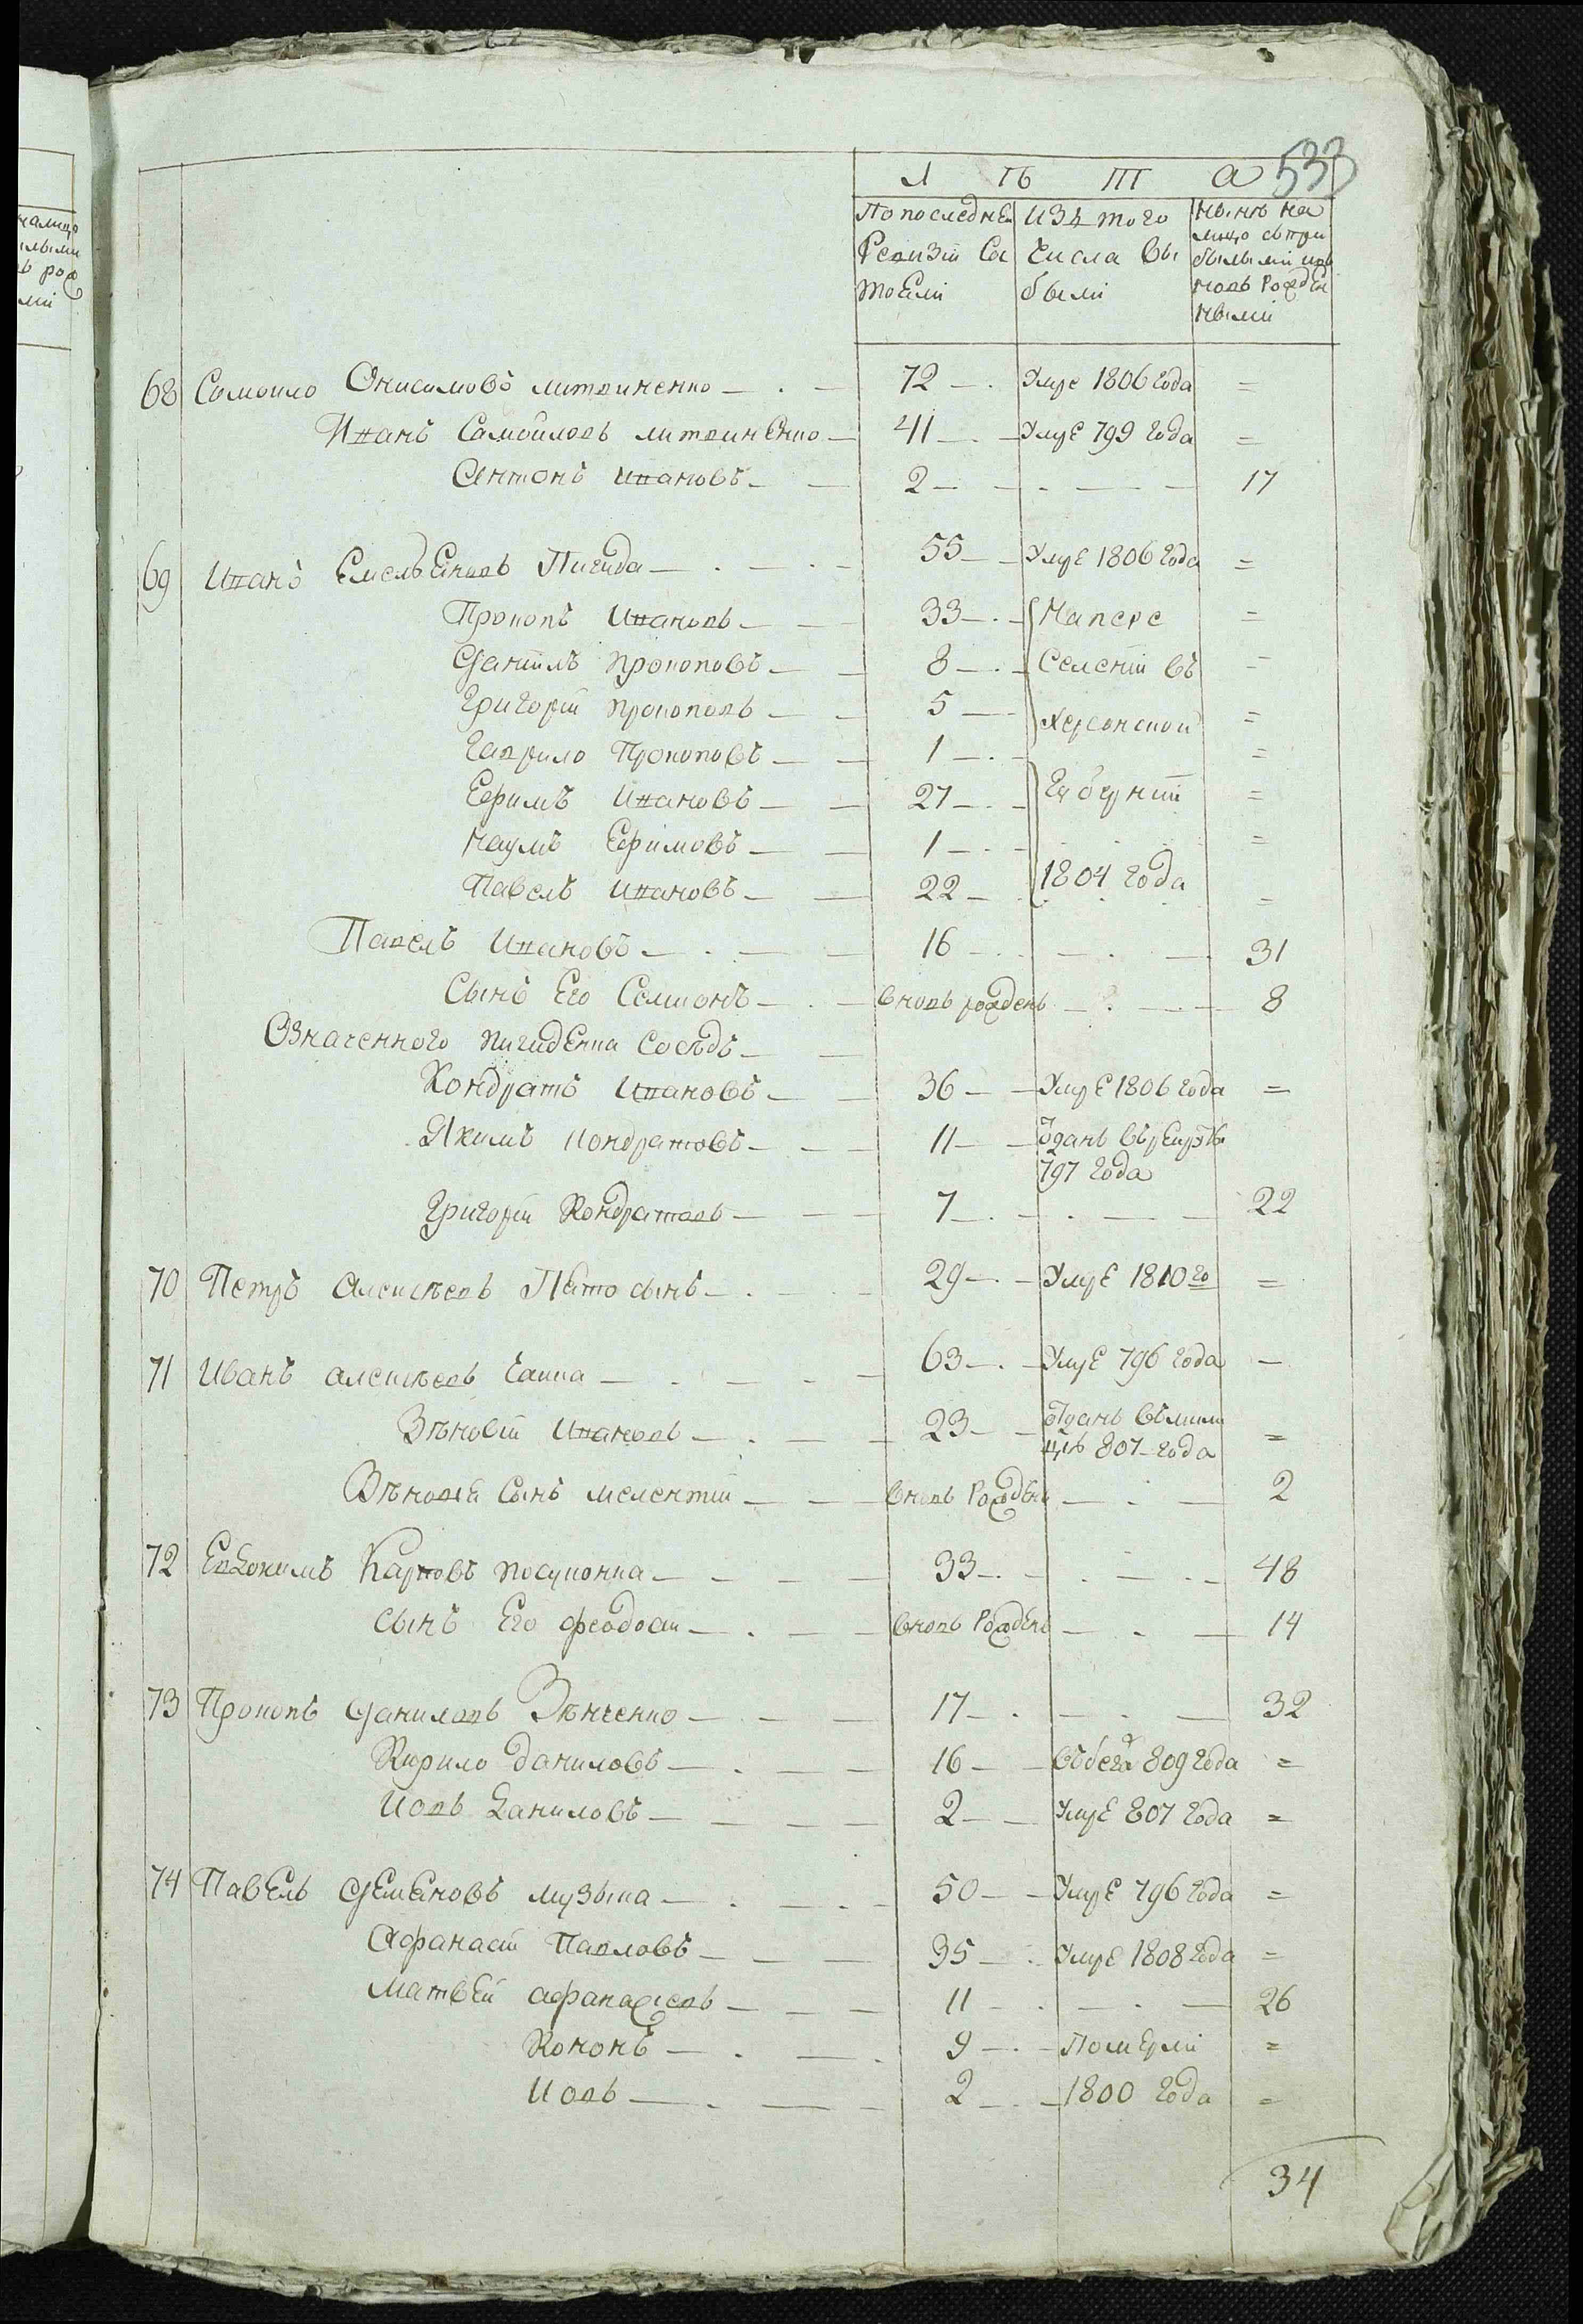 533
Л Ѣ Т а
По последней Ревизіи Состоели
Изъ того Числа выбыли
Нынѣ на лицо съ прибылыми и въновь рожденными
68 Самоило Онисимовъ литвиненко — 72 — Умре 1806 года =
Иванъ Самойловъ литвиненко — 41 — Умре 799 года =
Антонъ Ивановъ — 2 — 17
69 Иванъ Емельяновъ Пигида — 55 — Умре 1806 года =
Прокопъ Ивановъ — 33 — Напере =
Данiилъ Прокоповъ — 8 — Селенiи въ =
Григорiй Прокоповъ — 5 — Херсонской =
Гаврило Прокоповъ — 1 — =
Ефимъ Ивановъ — 27 — Губернiи =
Наумъ Ефимовъ — 1 — =
Павелъ Ивановъ — 22 — 1804 года =
Павелъ Ивановъ — 16 — 31
Сынъ Его Семионъ — вновь рожденъ — 8
Означенного пигиденка Сосѣдъ —
Кондратъ Ивановъ — 36 — Умре 1806 года =
Якимъ Кондратовъ — 11 — Отданъ въ рекруты
797 года
Григорiй Кондратовъ — 7 — 22
70 Петръ Алексѣевъ — 29 — Умре 1810 го =
71 Иванъ алексѣевъ — 63 — Умре 796 года —
Зѣновiй Ивановъ — 23 — отданъ въ мили
цiю 807 года =
Зѣновiя Сынъ мелентiй — вновь Рожденъ — 2
72 Евдокимъ Карповъ — 33 — 48
сынъ Его феодосiи — вновь Рожденъ — 14
73 Прокопъ Даниловъ Зѣнченко — 17 — 32
Кирило даниловъ — 16 — въ бега 809 года =
Иовъ Даниловъ — 2 — Умре 807 года =
74 Павелъ Демяновъ музыка — 50 — Умре 796 года =
Афанасiй Павловъ — 35 — Умре 1808 года =
матвей афанасiевъ — 11 — 26
Кононъ — 9 — Померли =
Иовъ — 2 — 1800 года =
34